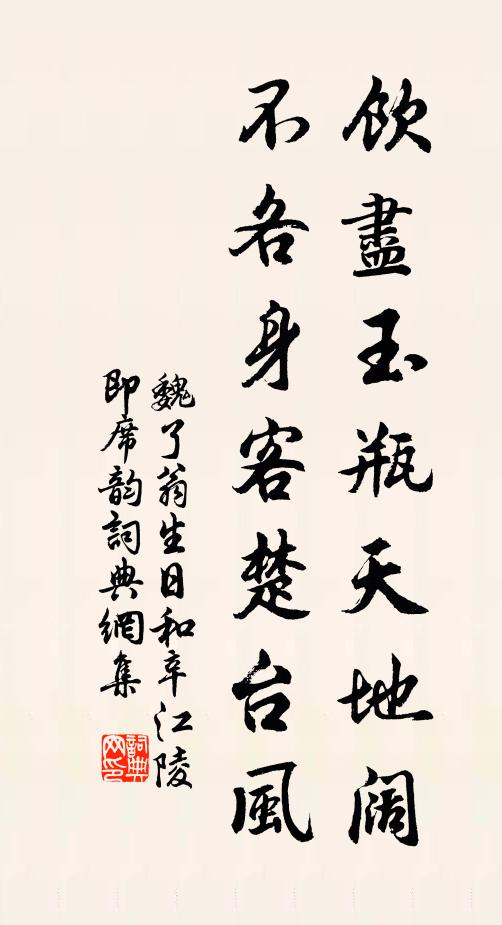 飲盡玉瓶天地阔
不各身客楚台風
魏了翁生日和辛江陵
即席韵詞典網集
詞典网印